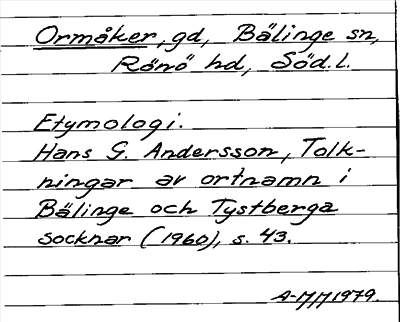 Ormåker, gd, Bälinge sn,
Rönö hd, Söd.l.
Etymologi.
Hans G. Andersson, Tolk-
ningar av ortnamn i
Bälinge och Tystberga
socknar (1960), s. 43.
A-MM 1979.